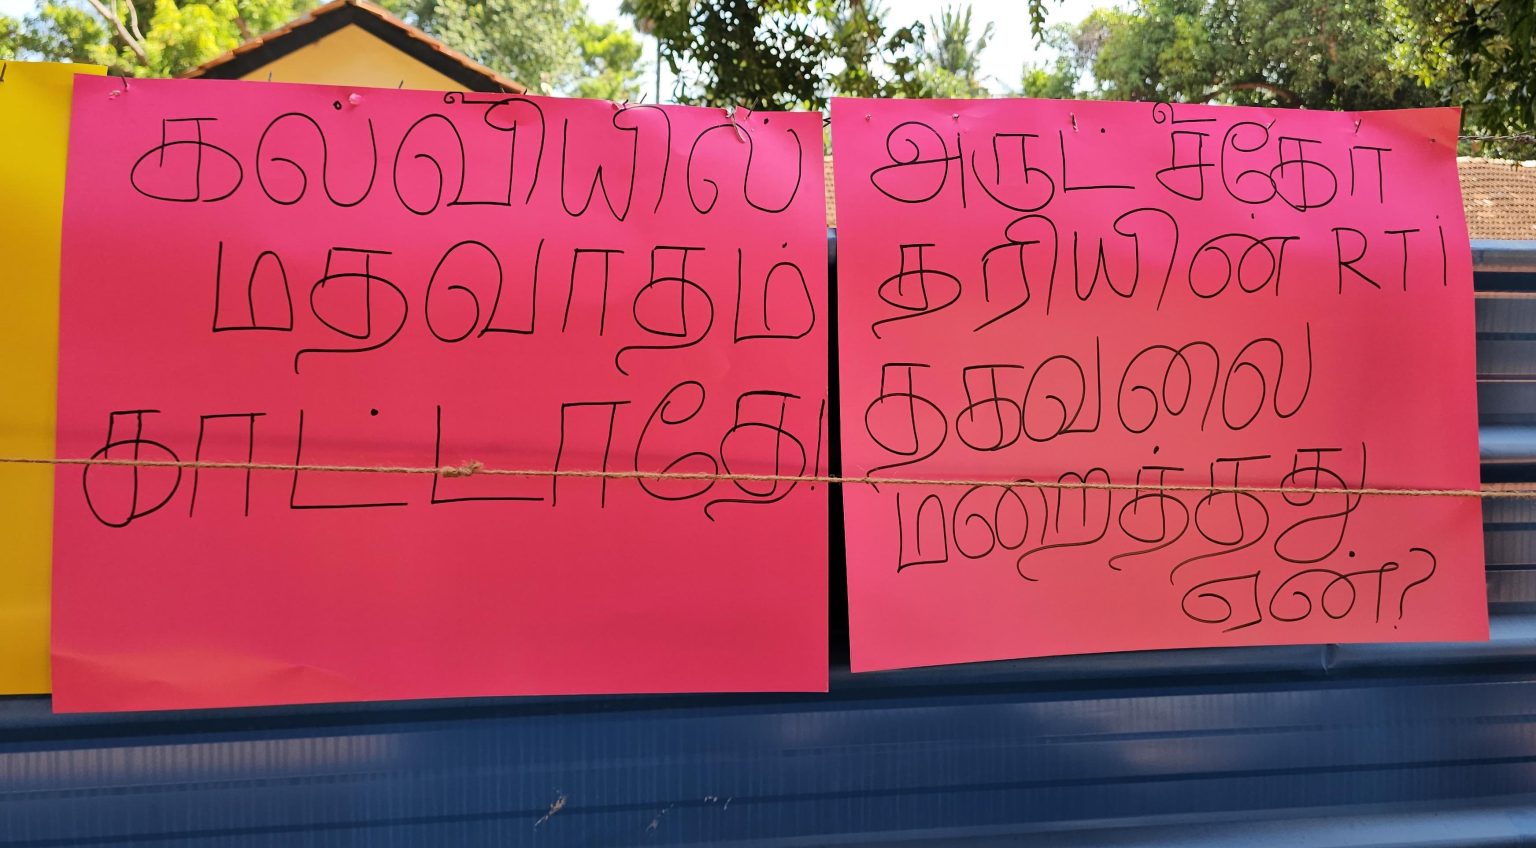 கல்வியில்
மதவாதம்
காட்டாதே!
அருட் சகோ
தரியின் RTI
தகவலை
மறைத்தது
ஏன்?